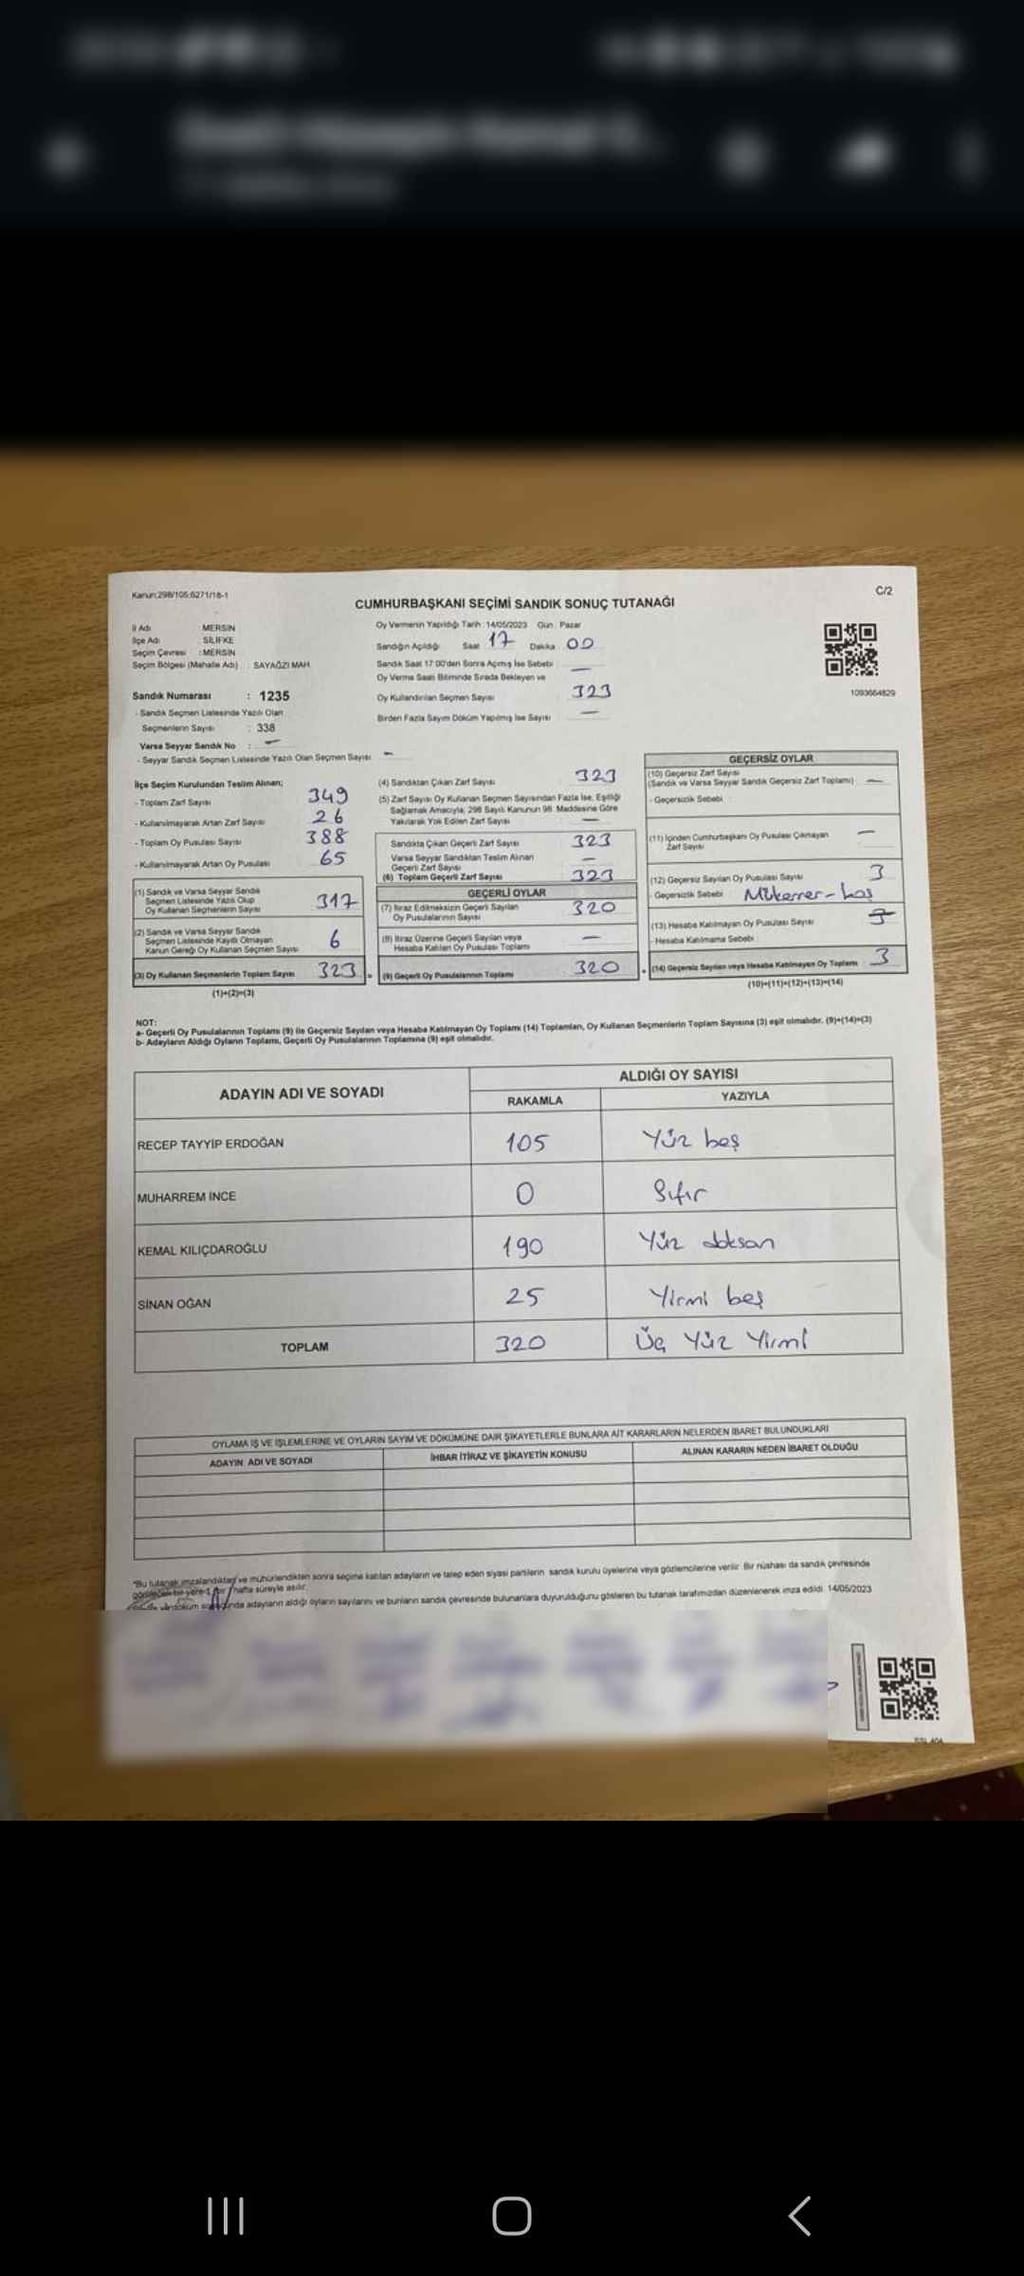 Kanun:298/105;6271/18-1
C/2
CUMHURBAŞKANI SEÇİMİ SANDIK SONUÇ TUTANAĞI
İl Adı : MERSİN
İlçe Adı : SİLİFKE
Seçim Çevresi : MERSİN
Seçim Bölgesi (Mahalle Adı) : SAYAĞZI MAH.
Sandık Numarası : 1235
- Sandık Seçmen Listesinde Yazılı Olan
Seçmenlerin Sayısı : 338
Varsa Seyyar Sandık No : —
- Seyyar Sandık Seçmen Listesinde Yazılı Olan Seçmen Sayısı : —
Oy Vermenin Yapıldığı Tarih : 14/05/2023 Gün : Pazar
Sandığın Açıldığı Saat 17 Dakika 00
Sandık Saat 17:00'den Sonra Açmış İse Sebebi —
Oy Verme Saati Bitiminde Sırada Bekleyen ve
Oy Kullandırılan Seçmen Sayısı 323
Birden Fazla Sayım Döküm Yapılmış İse Sayısı —
1093664829
İlçe Seçim Kurulundan Teslim Alınan;
- Toplam Zarf Sayısı 349
- Kullanılmayarak Artan Zarf Sayısı 26
- Toplam Oy Pusulası Sayısı 388
- Kullanılmayarak Artan Oy Pusulası 65
(1) Sandık ve Varsa Seyyar Sandık
Seçmen Listesinde Yazılı Olup
Oy Kullanan Seçmenlerin Sayısı 317
(2) Sandık ve Varsa Seyyar Sandık
Seçmen Listesinde Kayıtlı Olmayan
Kanun Gereği Oy Kullanan Seçmen Sayısı 6
(3) Oy Kullanan Seçmenlerin Toplam Sayısı 323
(1)+(2)=(3)
(4) Sandıktan Çıkan Zarf Sayısı 323
(5) Zarf Sayısı Oy Kullanan Seçmen Sayısından Fazla İse; Eşitliği
Sağlamak Amacıyla, 298 Sayılı Kanunun 98. Maddesine Göre
Yakılarak Yok Edilen Zarf Sayısı —
Sandıkta Çıkan Geçerli Zarf Sayısı 323
Varsa Seyyar Sandıktan Teslim Alınan
Geçerli Zarf Sayısı —
(6) Toplam Geçerli Zarf Sayısı 323
GEÇERLİ OYLAR
(7) İtiraz Edilmeksizin Geçerli Sayılan
Oy Pusulalarının Sayısı 320
(8) İtiraz Üzerine Geçerli Sayılan veya
Hesaba Katılan Oy Pusulası Toplamı —
(9) Geçerli Oy Pusulalarının Toplamı 320
GEÇERSİZ OYLAR
(10) Geçersiz Zarf Sayısı
(Sandık ve Varsa Seyyar Sandık Geçersiz Zarf Toplamı) —
- Geçersizlik Sebebi
(11) İçinden Cumhurbaşkanı Oy Pusulası Çıkmayan
Zarf Sayısı —
(12) Geçersiz Sayılan Oy Pusulası Sayısı 3
- Geçersizlik Sebebi Mükerrer-
(13) Hesaba Katılmayan Oy Pusulası Sayısı
- Hesaba Katılmama Sebebi
(14) Geçersiz Sayılan veya Hesaba Katılmayan Oy Toplamı 3
(10)+(11)+(12)+(13)=(14)
NOT:
a- Geçerli Oy Pusulalarının Toplamı (9) ile Geçersiz Sayılan veya Hesaba Katılmayan Oy Toplamı (14) Toplamları, Oy Kullanan Seçmenlerin Toplam Sayısına (3) eşit olmalıdır. (9)+(14)=(3)
b- Adayların Aldığı Oyların Toplamı, Geçerli Oy Pusulalarının Toplamına (9) eşit olmalıdır.
ADAYIN ADI VE SOYADI
ALDIĞI OY SAYISI
RAKAMLA YAZIYLA
RECEP TAYYİP ERDOĞAN 105 Yüz beş
MUHARREM İNCE 0 Sıfır
KEMAL KILIÇDAROĞLU 190 Yüz doksan
SİNAN OĞAN 25 Yirmi beş
TOPLAM 320 Üç Yüz Yirmi
OYLAMA İŞ VE İŞLEMLERİNE VE OYLARIN SAYIM VE DÖKÜMÜNE DAİR ŞİKAYETLERLE BUNLARA AİT KARARLARIN NELERDEN İBARET BULUNDUKLARI
ADAYIN ADI VE SOYADI İHBAR İTİRAZ VE ŞİKAYETİN KONUSU ALINAN KARARIN NEDEN İBARET OLDUĞU
"Bu tutanak imzalandıktan ve mühürlendikten sonra seçime katılan adayların ve talep eden siyasi partilerin sandık kurulu üyelerine veya gözlemcilerine verilir. Bir nüshası da sandık çevresinde
görülecek bir yere 1 hafta süreyle asılır.
adayların aldığı oyların sayılarını ve bunların sandık çevresinde bulunanlara duyurulduğunu gösteren bu tutanak tarafımızdan düzenlenerek imza edildi. 14/05/2023